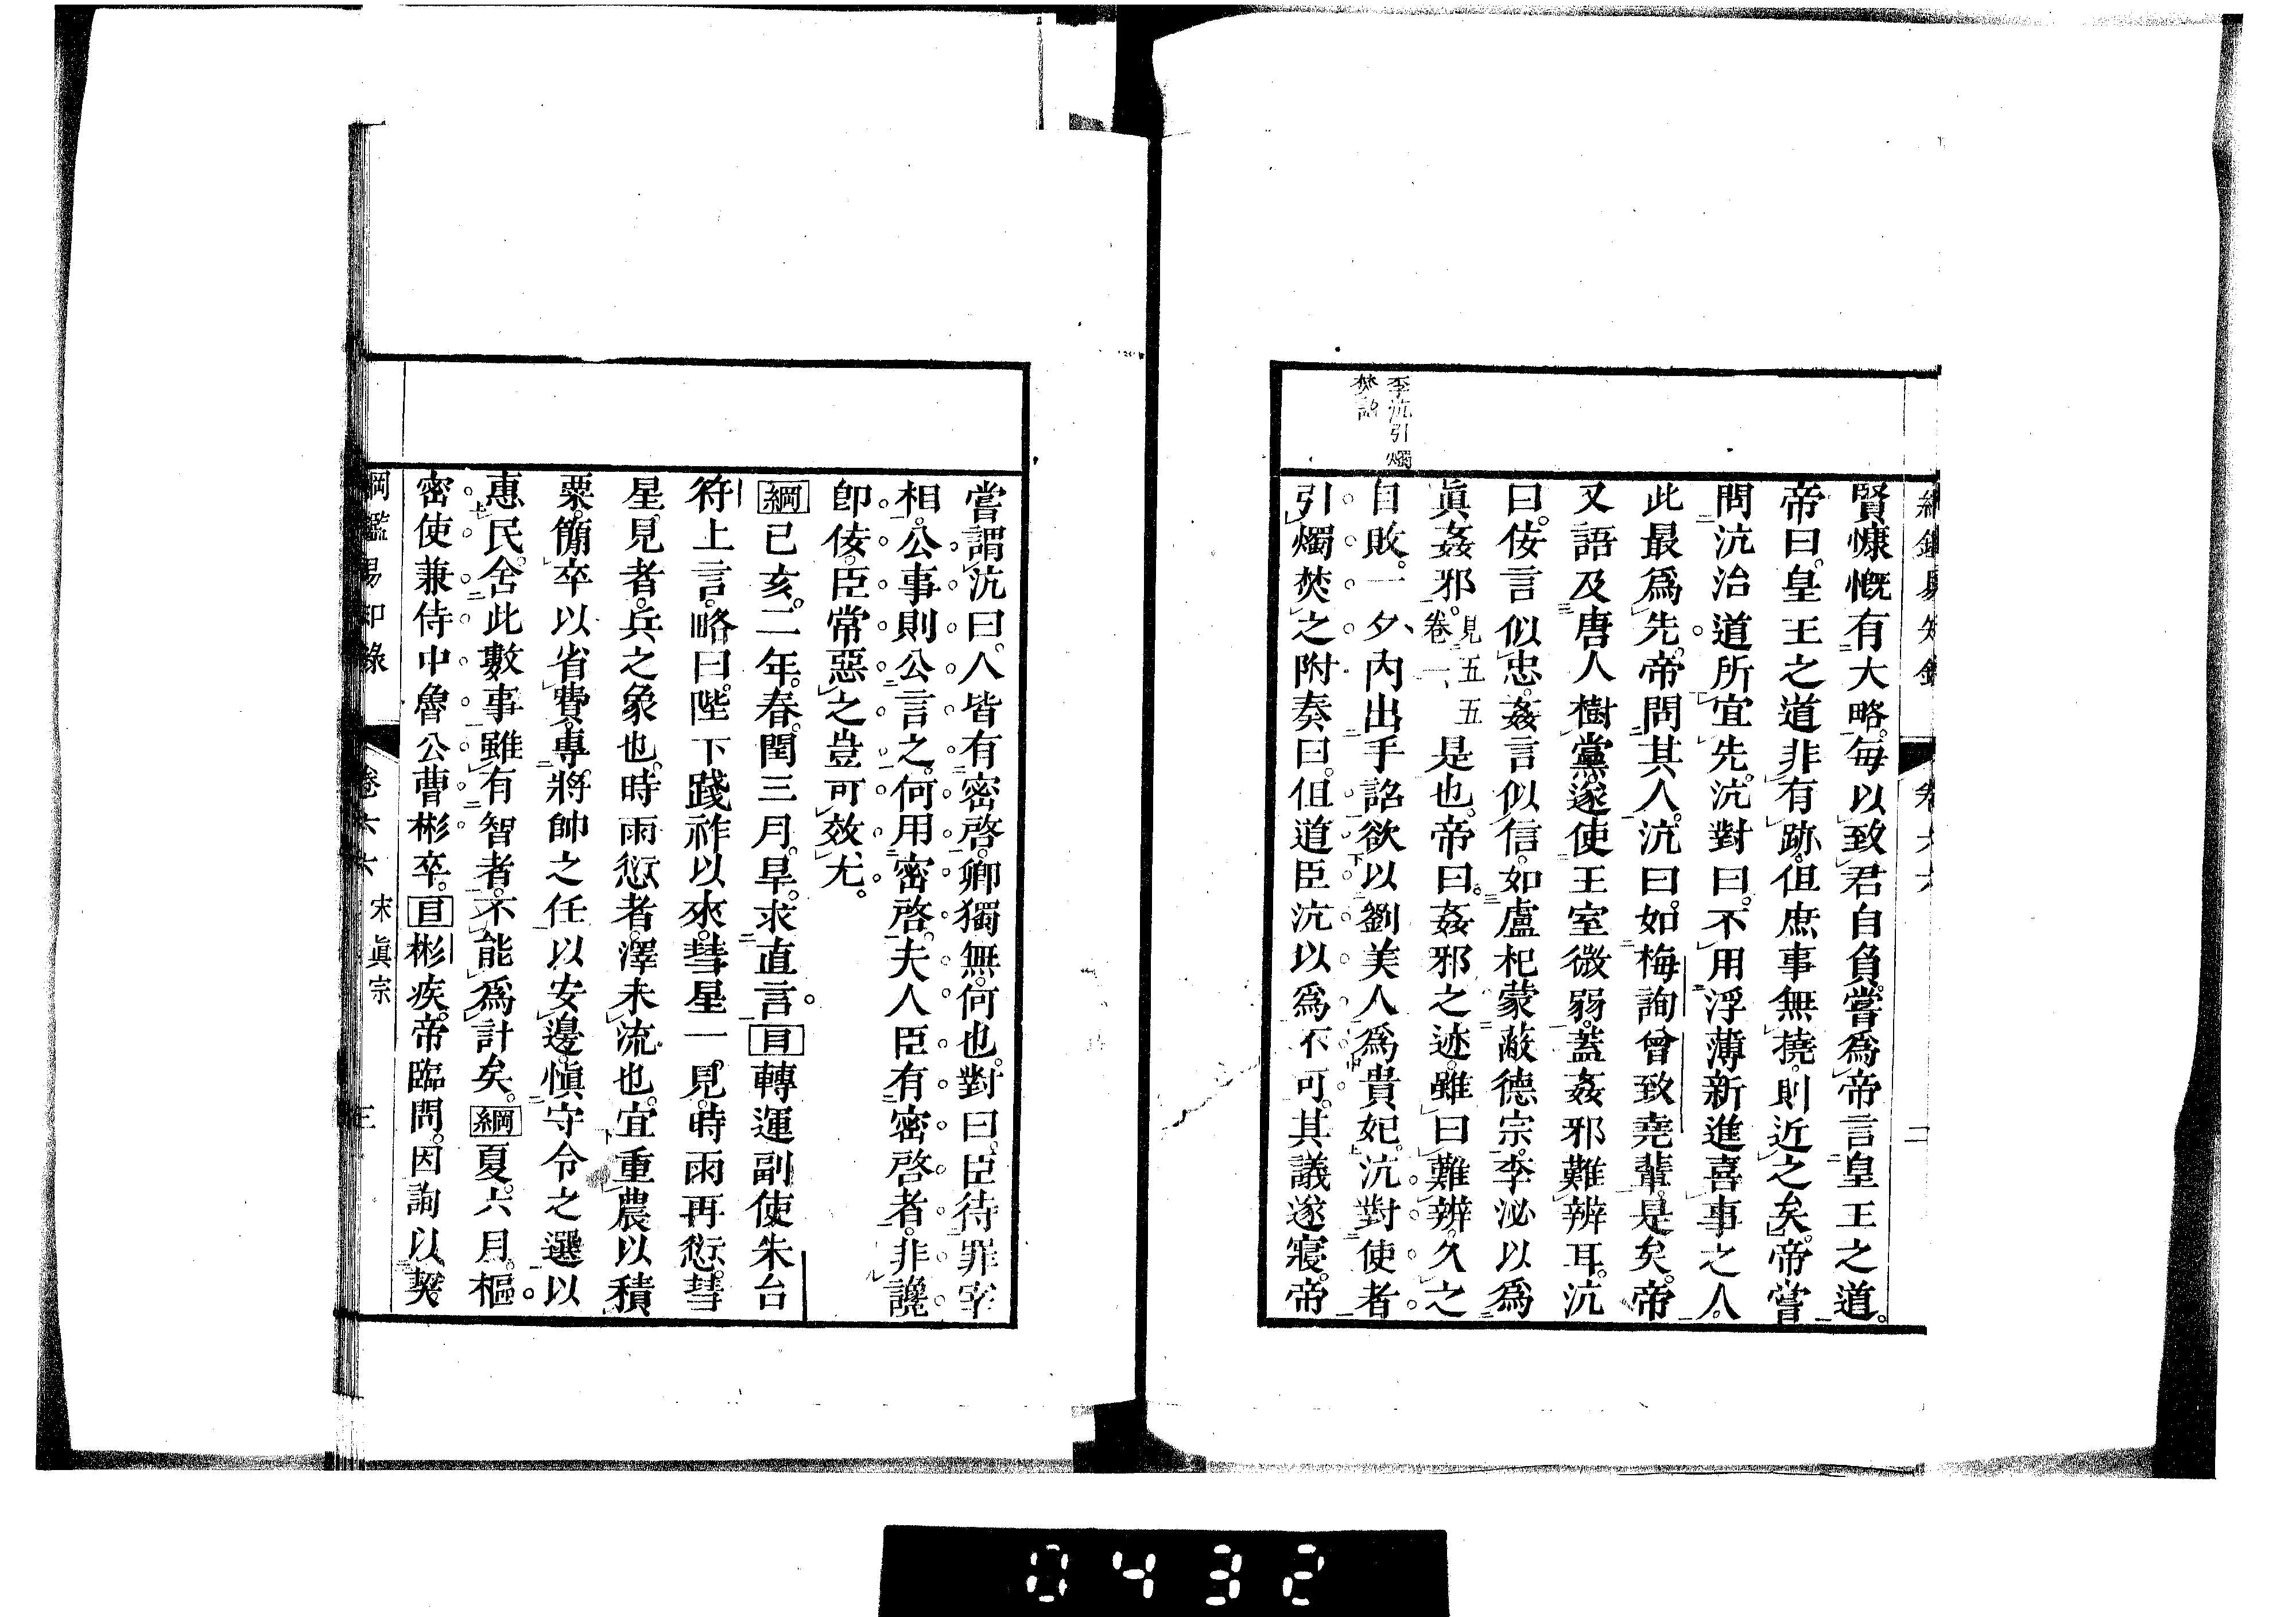 綱鑑易知錄 卷六六 二
賢慷慨有大略。每以致君自負。嘗爲帝言皇王之道。
帝曰。皇王之道非有跡。但庶事無撓。則近之矣。帝嘗
問沆治道所宜先。沆對曰。不用浮薄新進喜事之人。
此最爲先。帝問其人。沆曰。如梅詢曾致堯輩。是矣。帝
又語及唐人樹黨。遂使王室微弱。蓋姦邪難辨耳。沆
曰。佞言似忠。姦言似信。如盧杞蒙蔽德宗。李泌以爲
眞姦邪。見五五卷一、是也。帝曰。姦邪之迹。雖曰難辨。久之
李沆引燭焚詔
自敗。一夕、內出手詔、欲以劉美人爲貴妃。沆對使者
引燭焚之附奏曰。但道臣沆以爲不可。其議遂寢。帝
嘗謂沆曰。人皆有密啓。卿獨無。何也。對曰。臣待罪宰
相。公事則公言之。何用密啓。夫人臣有密啓者。非讒
卽佞。臣常惡之豈可效尤。
綱已亥。二年。春。閏三月。旱。求直言。目轉運副使朱台
符上言。略曰。陛下踐祚以來。彗星一見。時雨再愆。彗
星。見者。兵之象也。時雨愆者。澤未流也。宜重農以積
粟。簡卒以省費。專將帥之任以安邊。愼守令之選以
惠民。舍此數事。雖有智者。不能爲計矣。綱夏。六月。樞
密使兼侍中魯公曹彬卒。目彬疾。帝臨問。因詢以契
綱鑑易知錄 卷六六 宋眞宗 三
0432